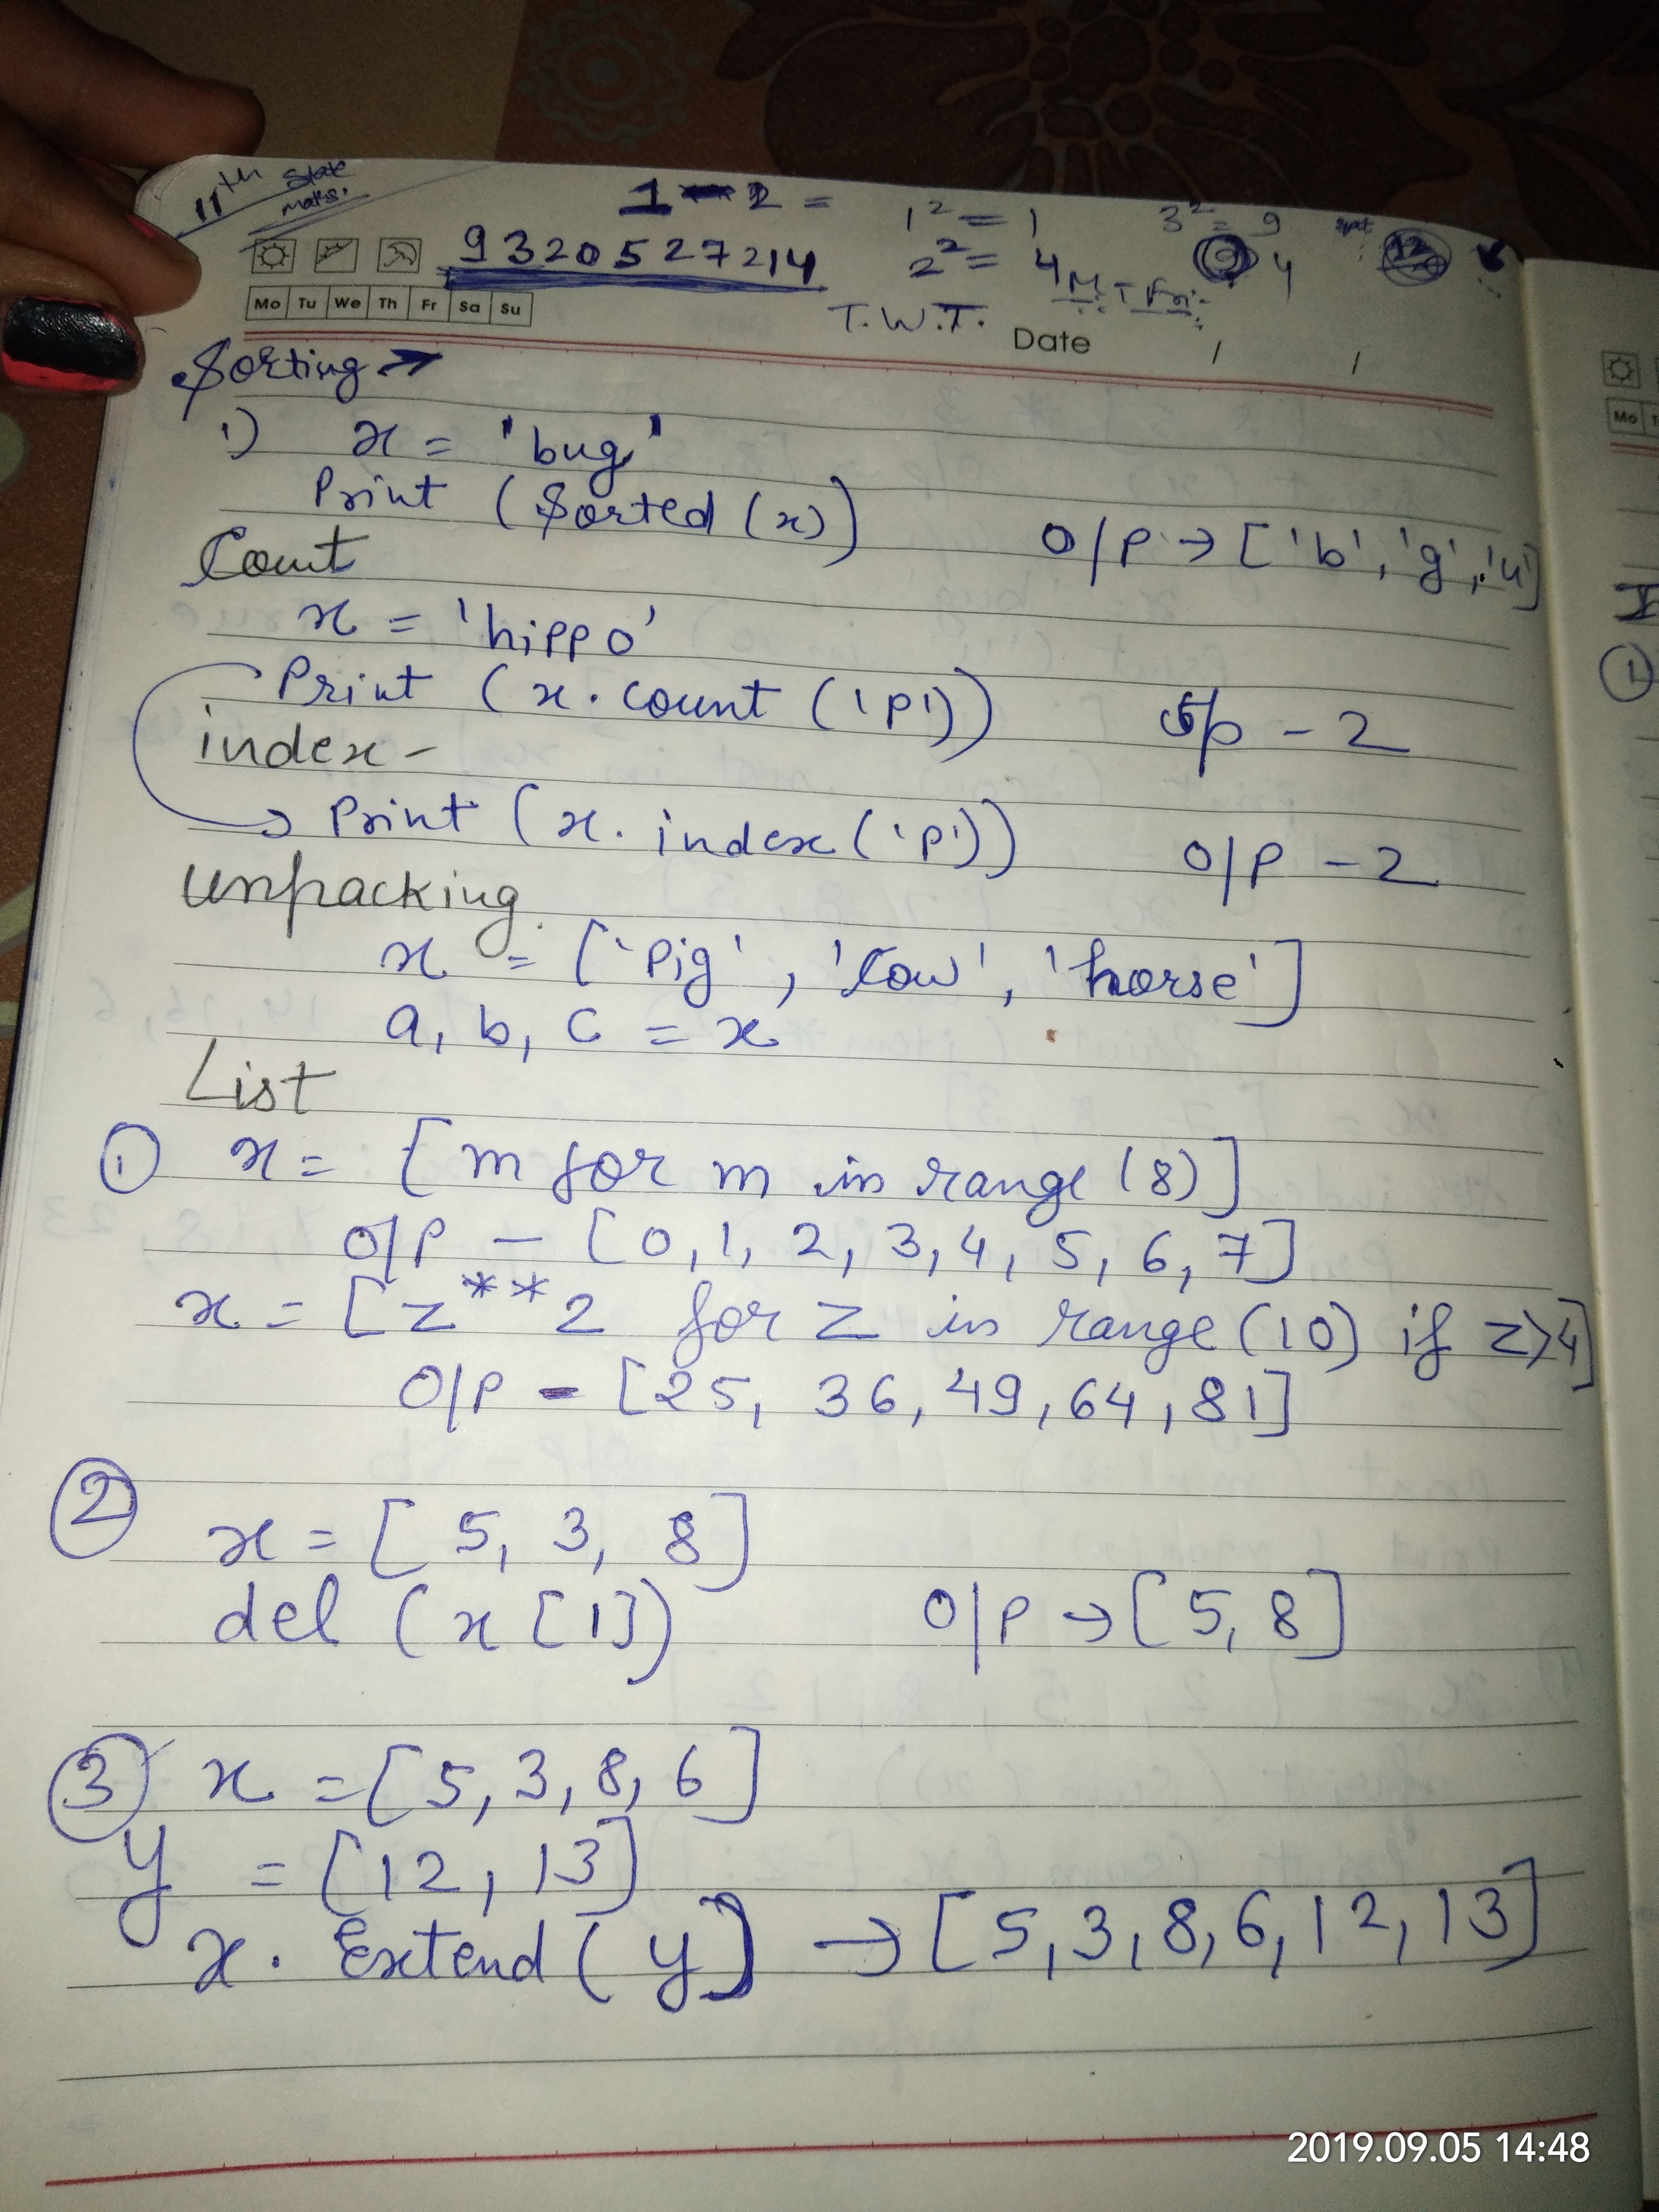 11th State
maths.
1 - 2 =
1² = 1
3² = 9
9320527214
2² = 4
4
M T Fri
T.W.T.
Mo Tu We Th Fr Sa Su
Date / /
Sorting →
1) x = 'bug'
Print (Sorted (x))
O/P → ['b', 'g', 'u']
Count
x = 'hippo'
Print (x. count ('p'))
O/p - 2
index -
→ Print (x. index ('p'))
O/P - 2
Unpacking.
x = ['Pig', 'Cow', 'horse']
a, b, c = x
List
① x = [m for m in range (8)]
O/P - [0, 1, 2, 3, 4, 5, 6, 7]
x = [z**2 for z in range (10) if z>4]
O/P - [25, 36, 49, 64, 81]
②
x = [5, 3, 8]
del (x [1])
O/P → [5, 8]
③ x = [5, 3, 8, 6]
y = [12, 13]
x. Extend (y) → [5, 3, 8, 6, 12, 13]
Mo
2019.09.05 14:48